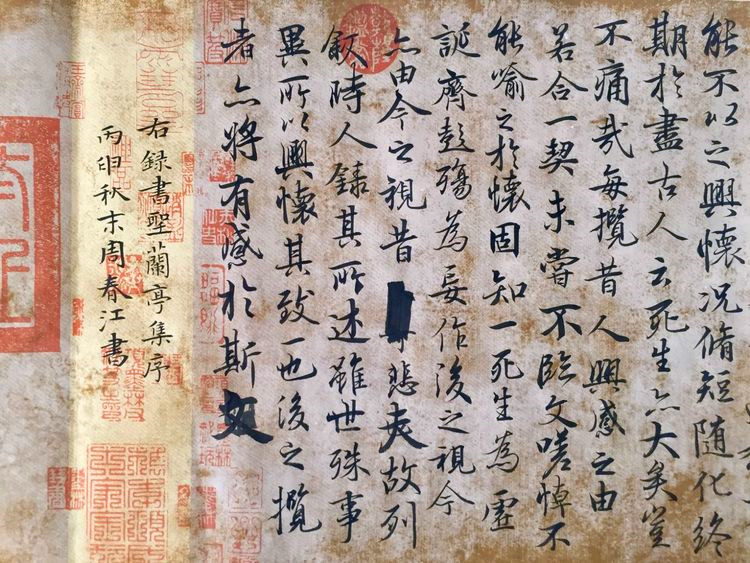 能不以之興懷況脩短隨化終
期於盡古人云死生亦大矣豈
不痛哉每攬昔人興感之由
若合一契未嘗不臨文嗟悼不
能喻之於懷固知一死生為虛
誕齊彭殤為妄作後之視今
亦由今之視昔悲夫故列
敘時人錄其所述雖世殊事
異所以興懷其致一也後之攬
者亦將有感於斯文
右錄書聖蘭亭集序
丙申秋末周春江書